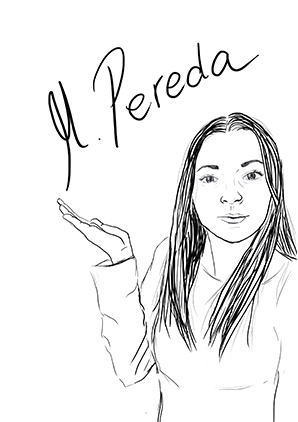 M. Pereda